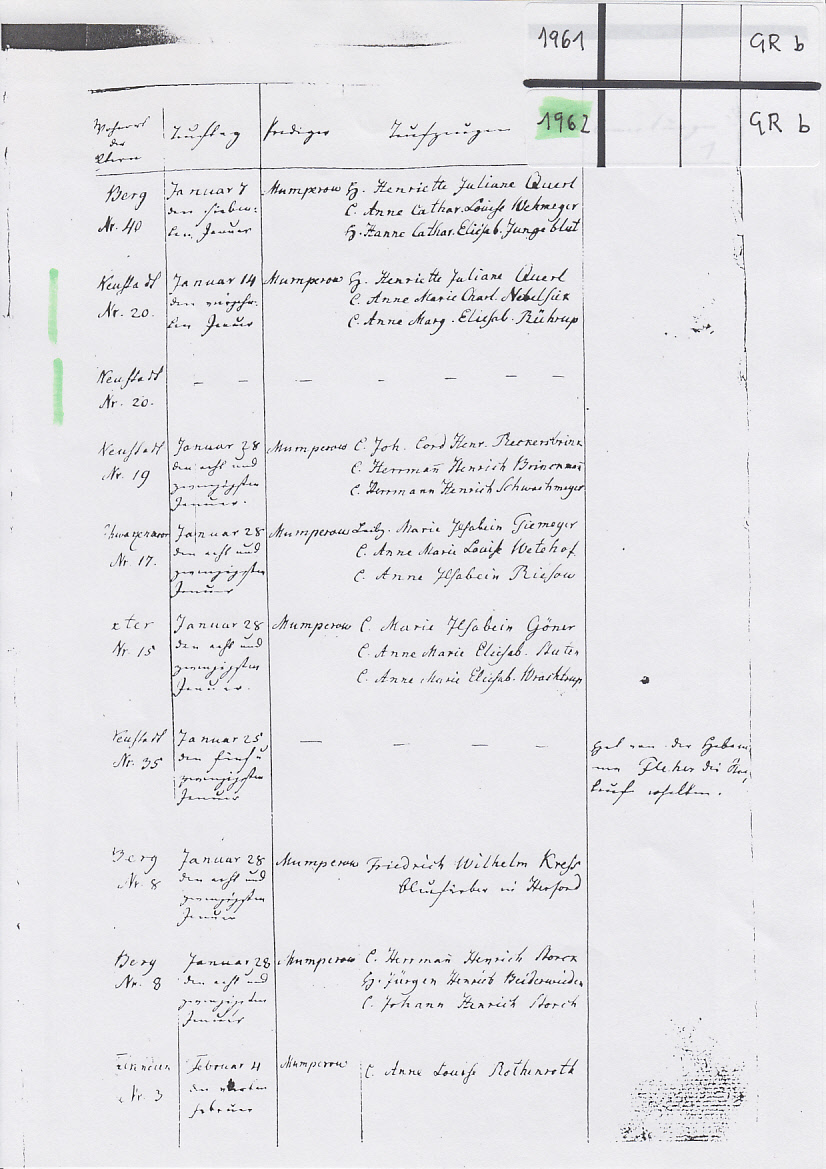 1961 GR b
1962 GR b
Wohnort der Eltern
Tauftag
Prediger
Taufzeugen
Berg Nr. 40
Januar 7 den sieben-
ten Januar
Mumperow
H. Henriette Juliane Querl
C. Anne Cathar. Louise Wehmeyer
H. Hanne Cathar. Eliesab. Jungeblut
Neustadt Nr. 20.
Januar 14 den vierzehn-
ten Januar
Mumperow
H. Henriette Juliane Querl
C. Anne Marie Charl. Nebelsiek
C. Anne Marg. Eliesab. Rührup
Neustadt Nr. 20.
— — — — — — —
Neustadt Nr. 19
Januar 28
den acht und
zwanzigsten
Januar.
Mumperow
C. Joh. Cord Henr. Beckersbrink
C. Herrmann Henrich Brinckmann
C. Herrmann Henrich Schwachmeyer
Nr. 17.
Januar 28
den acht und
zwanzigsten
Januar
Mumperow
Marie Ilsabein Giemeyer
C. Anne Marie Louise Wetehof
C. Anne Ilsabein Riesow
xter
Nr. 15
Januar 28
den acht und
zwanzigsten
Januar.
Mumperow
C. Marie Ilsabein Göner
C. Anne Marie Eliesab. Stuten
C. Anne Marie Eliesab. Wrachtrup
Neustadt
Nr. 35
Januar 25
den fünf u
zwanzigsten
Januar
— — — —
hat von der Hebam
me die No,
taufe erhalten.
Berg
Nr. 8
Januar 28
den acht und
zwanzigsten
Januar
Mumperow
Friedrich Wilhelm Kress
Blaufärber in Herford
Berg
Nr. 8
Januar 28
den acht und
zwanzigsten
Januar
Mumperow
C. Herrmann Henrich Storck
H. Jürgen Henrich Beiderwieden
C. Johann Henrich Storch
Nr. 3
Februar 4
den vierten
Februar
Mumperow
C. Anne Louise Rothenroth